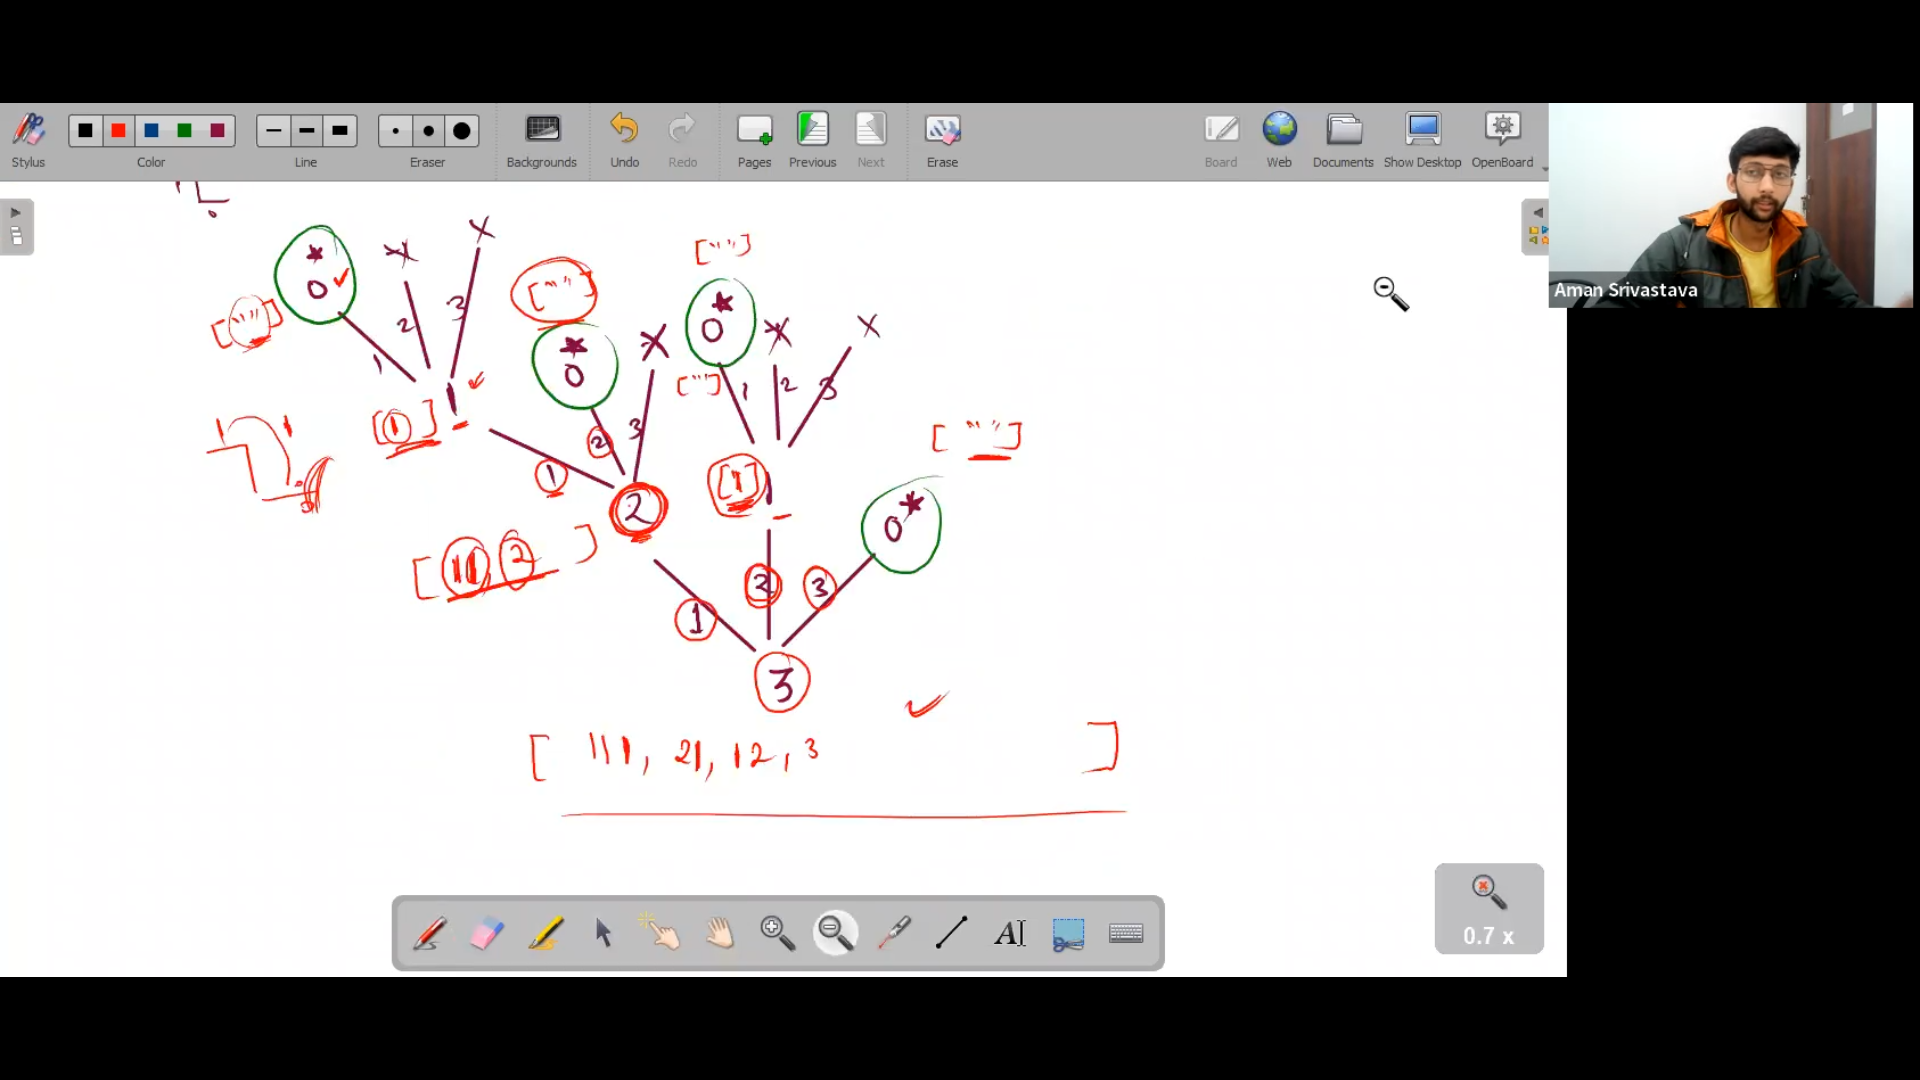 Stylus Color Line Eraser Backgrounds Undo Redo Pages Previous Next Erase Board Web Documents Show Desktop OpenBoard
Aman Srivastava
X
* X [""]
0 ✓ 3 [""] *
[""] 2 * X 0 X X
1 0 [""] 1 2 3
[1] 1 ✓ 2 3 [""]
1 [1] 1 *
2 0
[11, 2]
1 2 3
3
✓
[ 111, 21, 12, 3 ]
AI
0.7 x